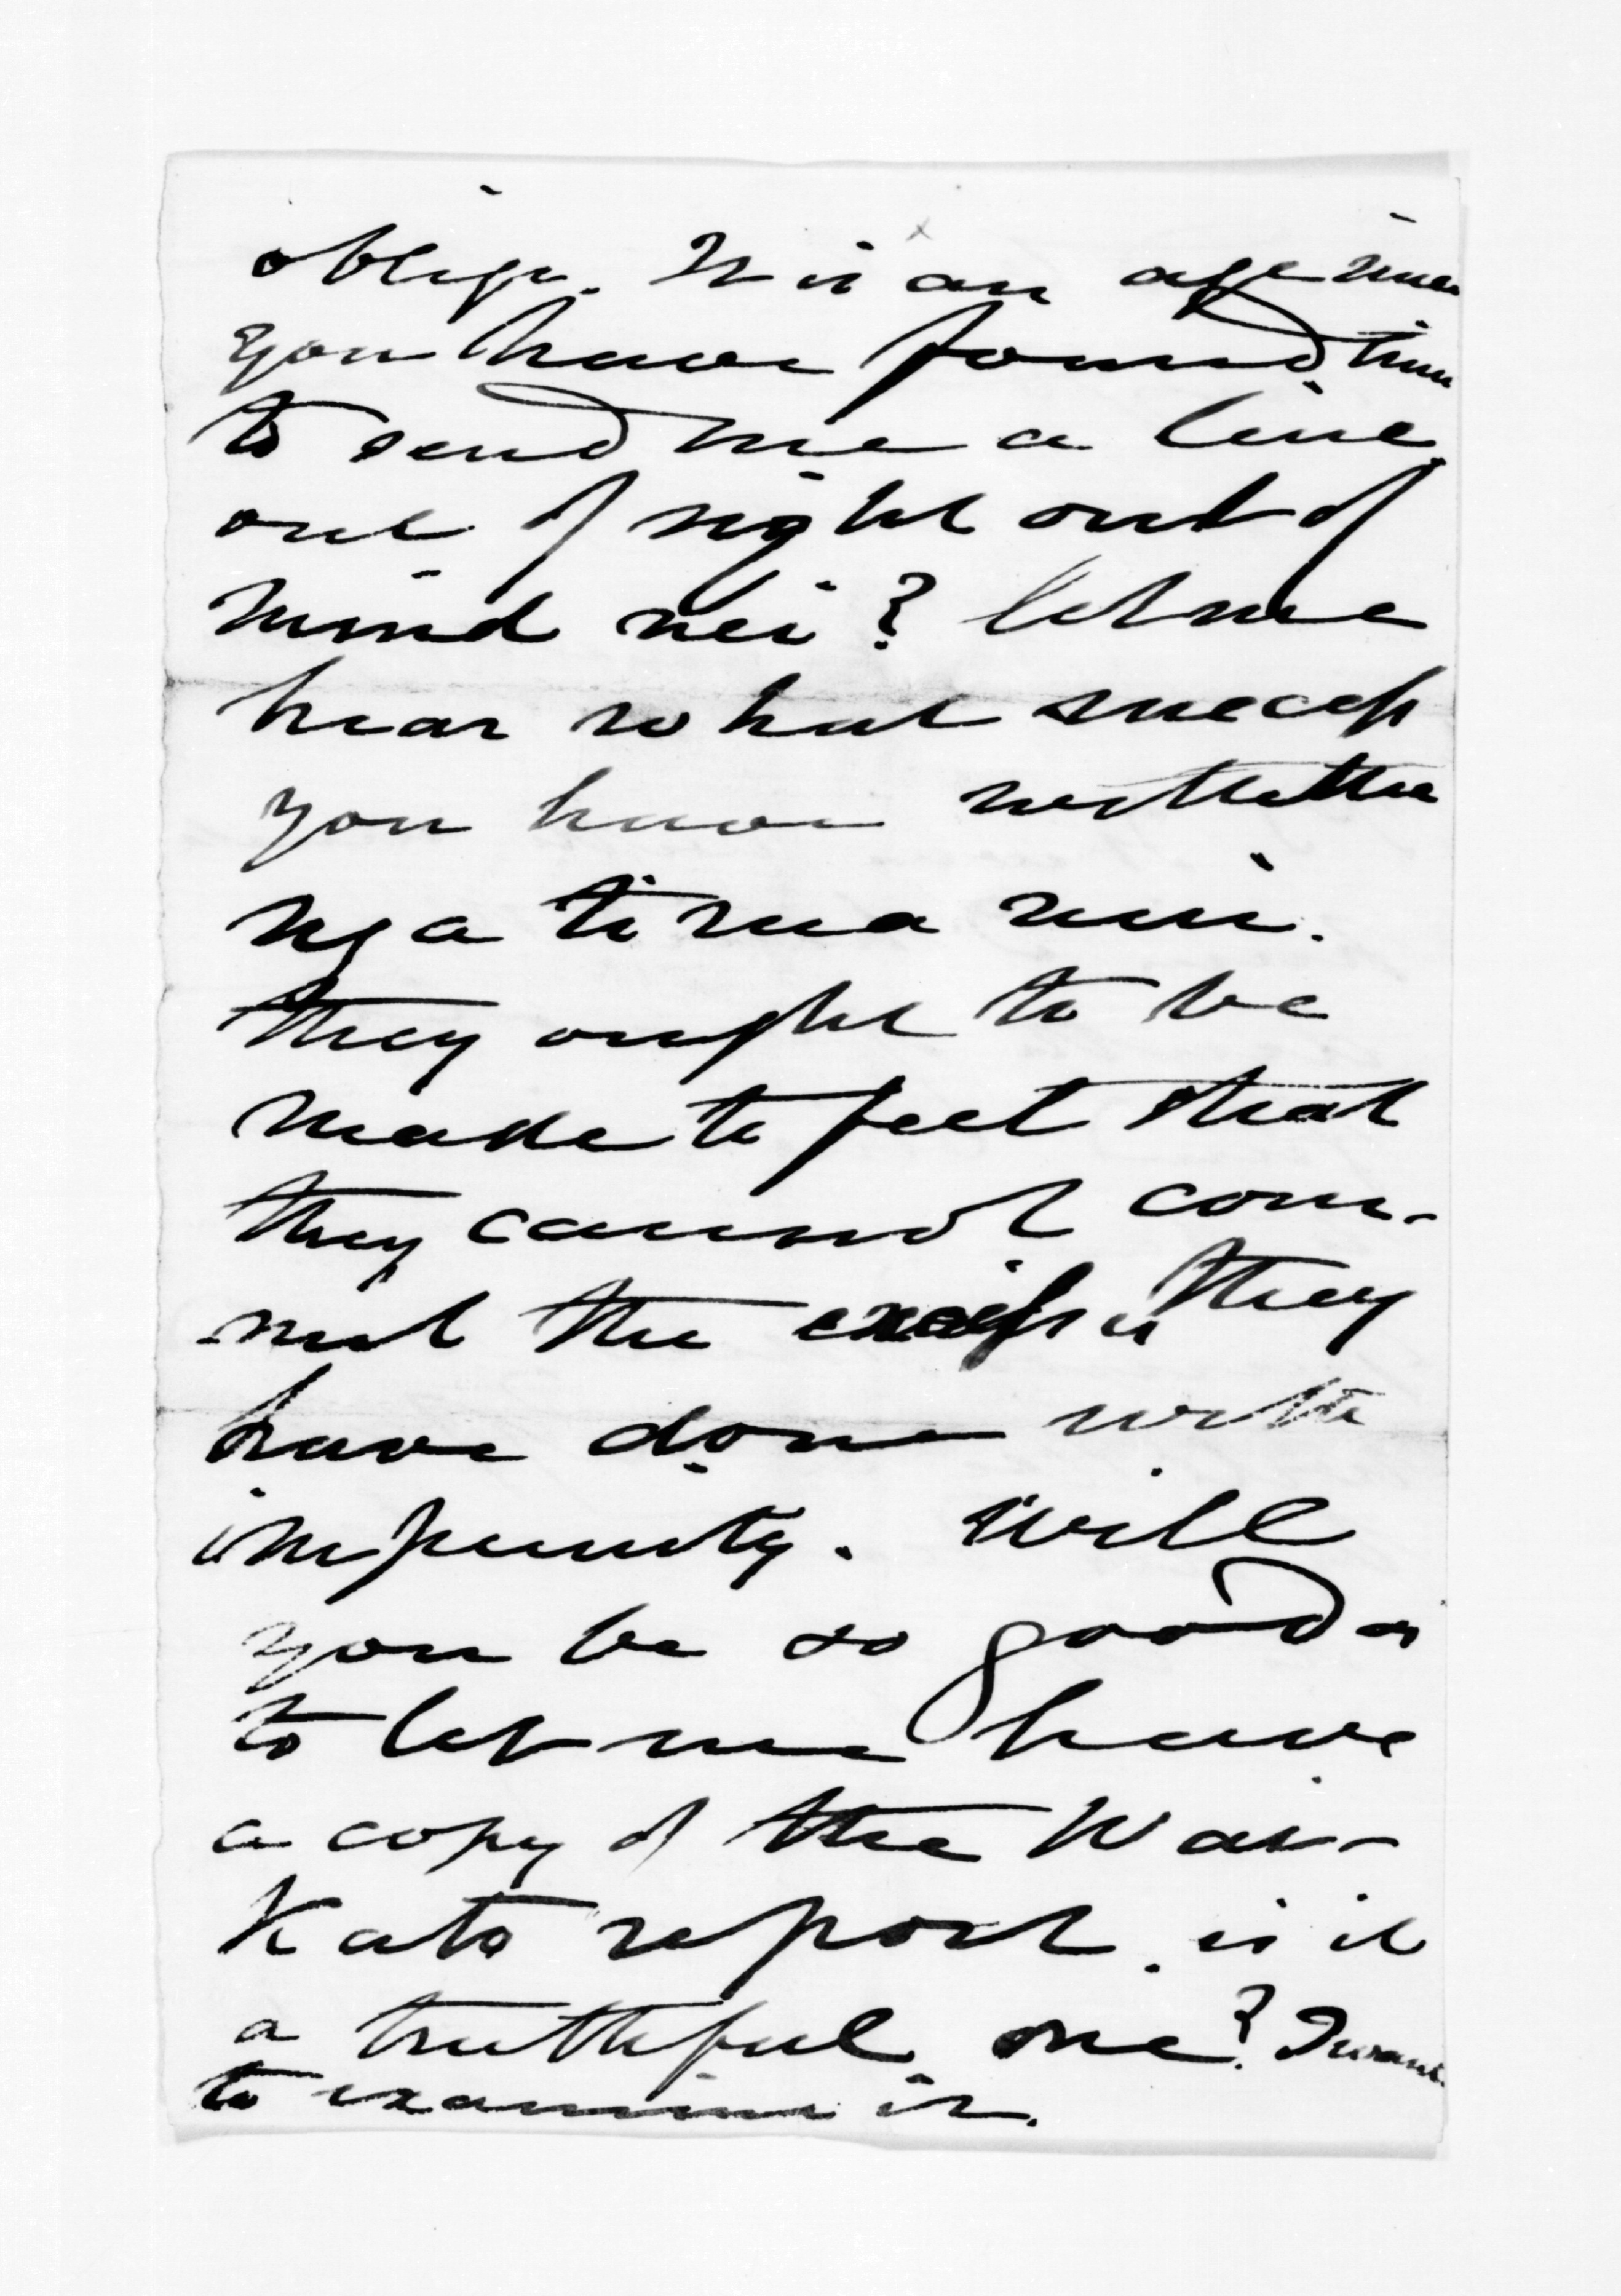 oblige. It is an age since
you have found time
to send me a line.
out of sight out of
mind nei? let me
hear what success
you have with the
ngatiruanui.
they ought to be
made to feel that
they cannot com-
-mit the excesses they
have done with
impunity. Will
you be so good as
to let me have
a copy of the Wai-
Kato report. is it
a truthful one? I want
to examine it.